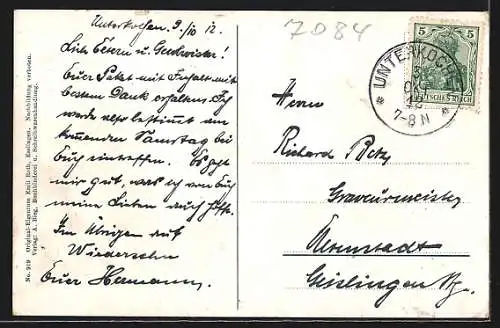 Unterkochen 9./10 12.
Liebe Eltern u. Geschwister!
Euer Paket mit Inhalt mit
bestem Dank erhalten. Ich
werde also bestimmt am
kommenden Samstag bei
Euch eintreffen. Es geht
mir gut, was ich von Euch
meine Lieben auch hoffe.
Im Übrigen auf
Wiedersehn
Euer Hermann.
7084
UNTERKOCHEN
OKT
12
7-8 N
5 5
DEUTSCHES REICH
Herrn
Richard Betz
Graveurmeister
Altenstadt
Geislingen Stg.
No. 919 Original-Eigentum Emil Roth, Esslingen. Nachbildung verboten.
Verlag: A. Hieg, Buchbinderei u. Schreibwarenhandlung.